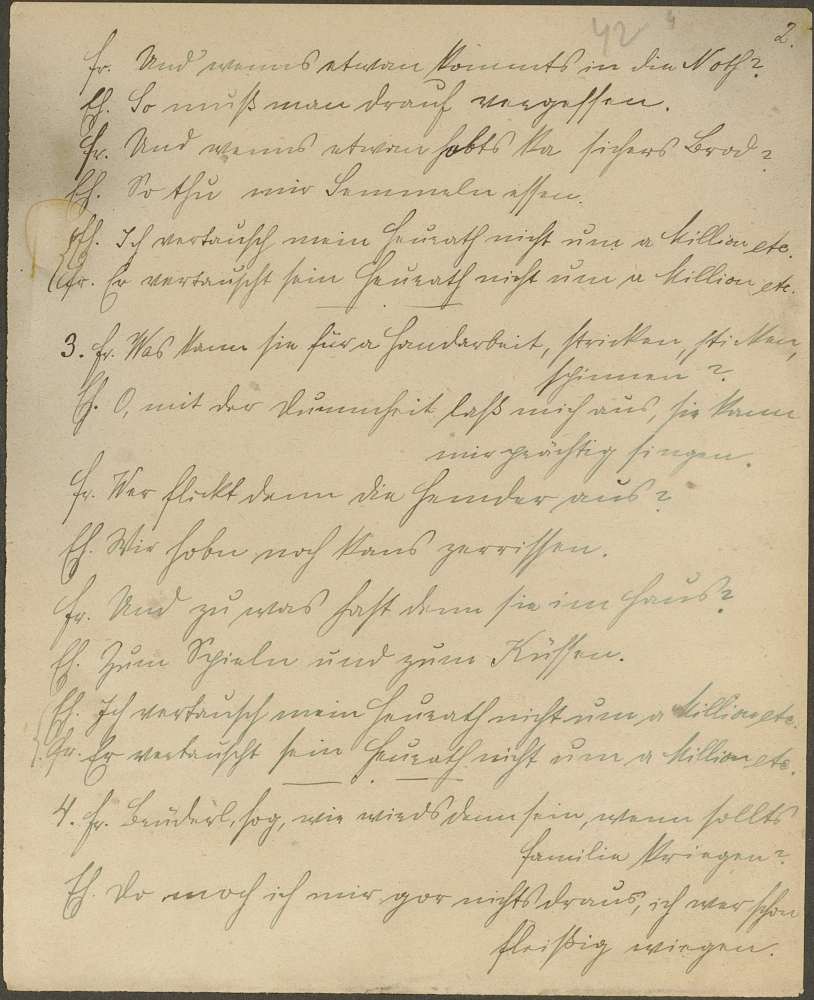 42 2.
Fr. Und wenns etwan kommts in die Noth?
Eh. So muß man drauf vergessen.
Fr. Und wenns etwan hobts ka sichers Brod?
Eh. So thu mir Semmeln essen.
Eh. Ich vertausch mein Heurath nicht um a Million etc.
Fr. Er vertauscht sein Heurath nicht um a Million etc.
3. Fr. Was kann sie für a Handarbeit, stricken, sticken,
spinnen?
Eh. O, mit der Dummheit laß mich aus, sie kann
mir prächtig singen.
Fr. Wer flickt denn die Hemder aus?
Eh. Wir hobn noch kans zerrissen.
Fr. Und zu was hast denn sie im Haus?
Eh. Zum Spieln und zum Küssen.
Eh. Ich vertausch mein Heurath nicht um a Million etc.
Fr. Er vertauscht sein Heurath nicht um a Million etc.
4. Fr. Brüderl, sog, wie wirds denn sein, wenn sollts
Familie kriegen?
Eh. Do moch ich mir gor nichts draus, ich wer schon
fleißig wiegen.